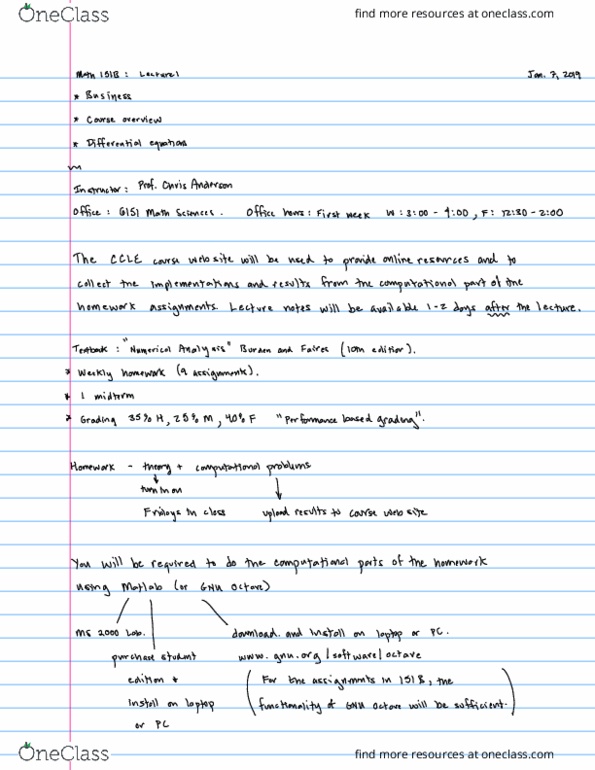 OneClass
find more resources at oneclass.com
Math 151B : Lecture 1 Jan. 7, 2019
* Business
* Course overview
* Differential equations
Instructor: Prof. Chris Anderson
Office : 6151 Math Sciences. Office hours: First week W : 3:00 - 4:00 , F: 12:30 - 2:00
The CCLE course web site will be used to provide online resources and to
collect the implementations and results from the computational part of the
homework assignments. Lecture notes will be available 1-2 days after the lecture.
Textbook : "Numerical Analysis" Burden and Faires (10th edition).
* Weekly homework (9 assignments).
* 1 midterm
* Grading 35% H, 25% M, 40% F "Performance based grading".
Homework - theory + computational problems
turn in on
Fridays in class upload results to course web site
You will be required to do the computational parts of the homework
using Matlab (or GNU Octave)
MS 2000 Lab. download and install on laptop or PC.
purchase student www.gnu.org/software/octave
edition + (For the assignments in 151B, the
install on laptop functionality of GNU Octave will be sufficient.)
or PC
OneClass
find more resources at oneclass.com